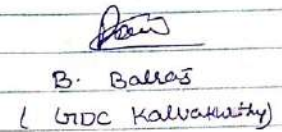 B. Balraj
( GDC Kalvakurthy)